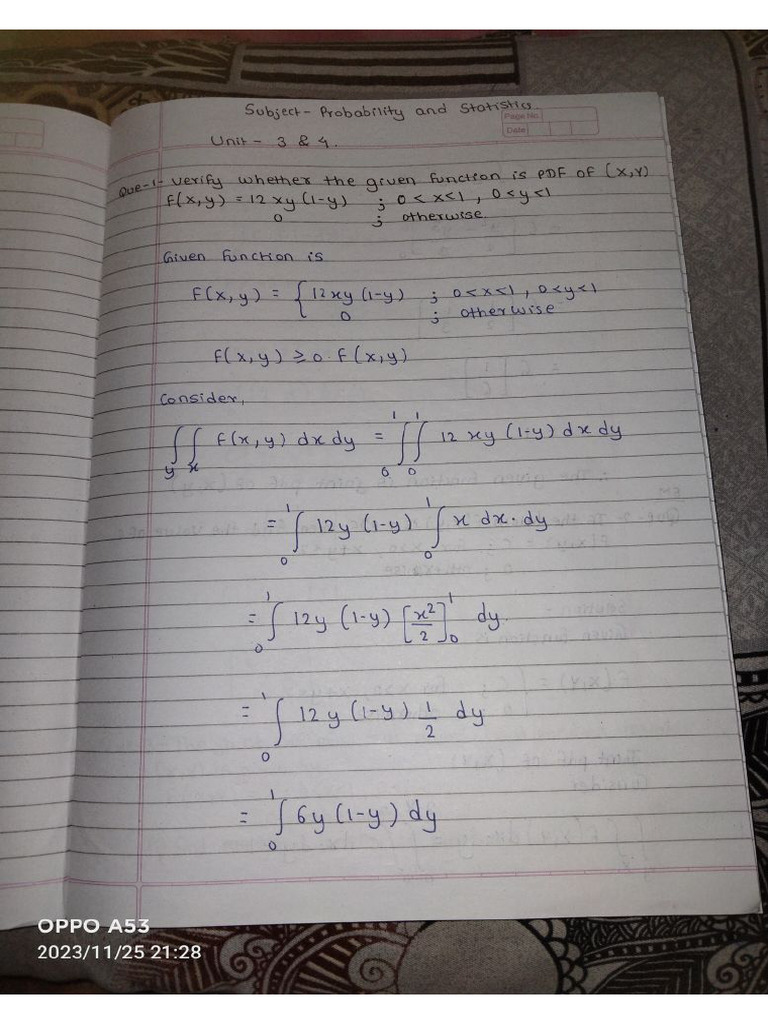 Subject - Probability and Statistics.
Page No.
Date
Unit - 3 & 4.
Que-1- Verify whether the given function is PDF of (X,Y)
F(x,y) = 12 xy (1-y) ; 0<x<1 , 0<y<1
0 ; otherwise.
Given function is
F(x,y) = { 12xy (1-y) ; 0<x<1 , 0<y<1
0 ; otherwise
F(x,y) ≥ 0 . F(x,y)
Consider,
∫_y ∫_x F(x,y) dx dy = ∫_0^1 ∫_0^1 12 xy (1-y) dx dy
= ∫_0^1 12y (1-y) ∫_0^1 x dx. dy
= ∫_0^1 12y (1-y) [x²/2]_0^1 dy.
= ∫_0^1 12y (1-y) 1/2 dy
= ∫_0^1 6y (1-y) dy
OPPO A53
2023/11/25 21:28